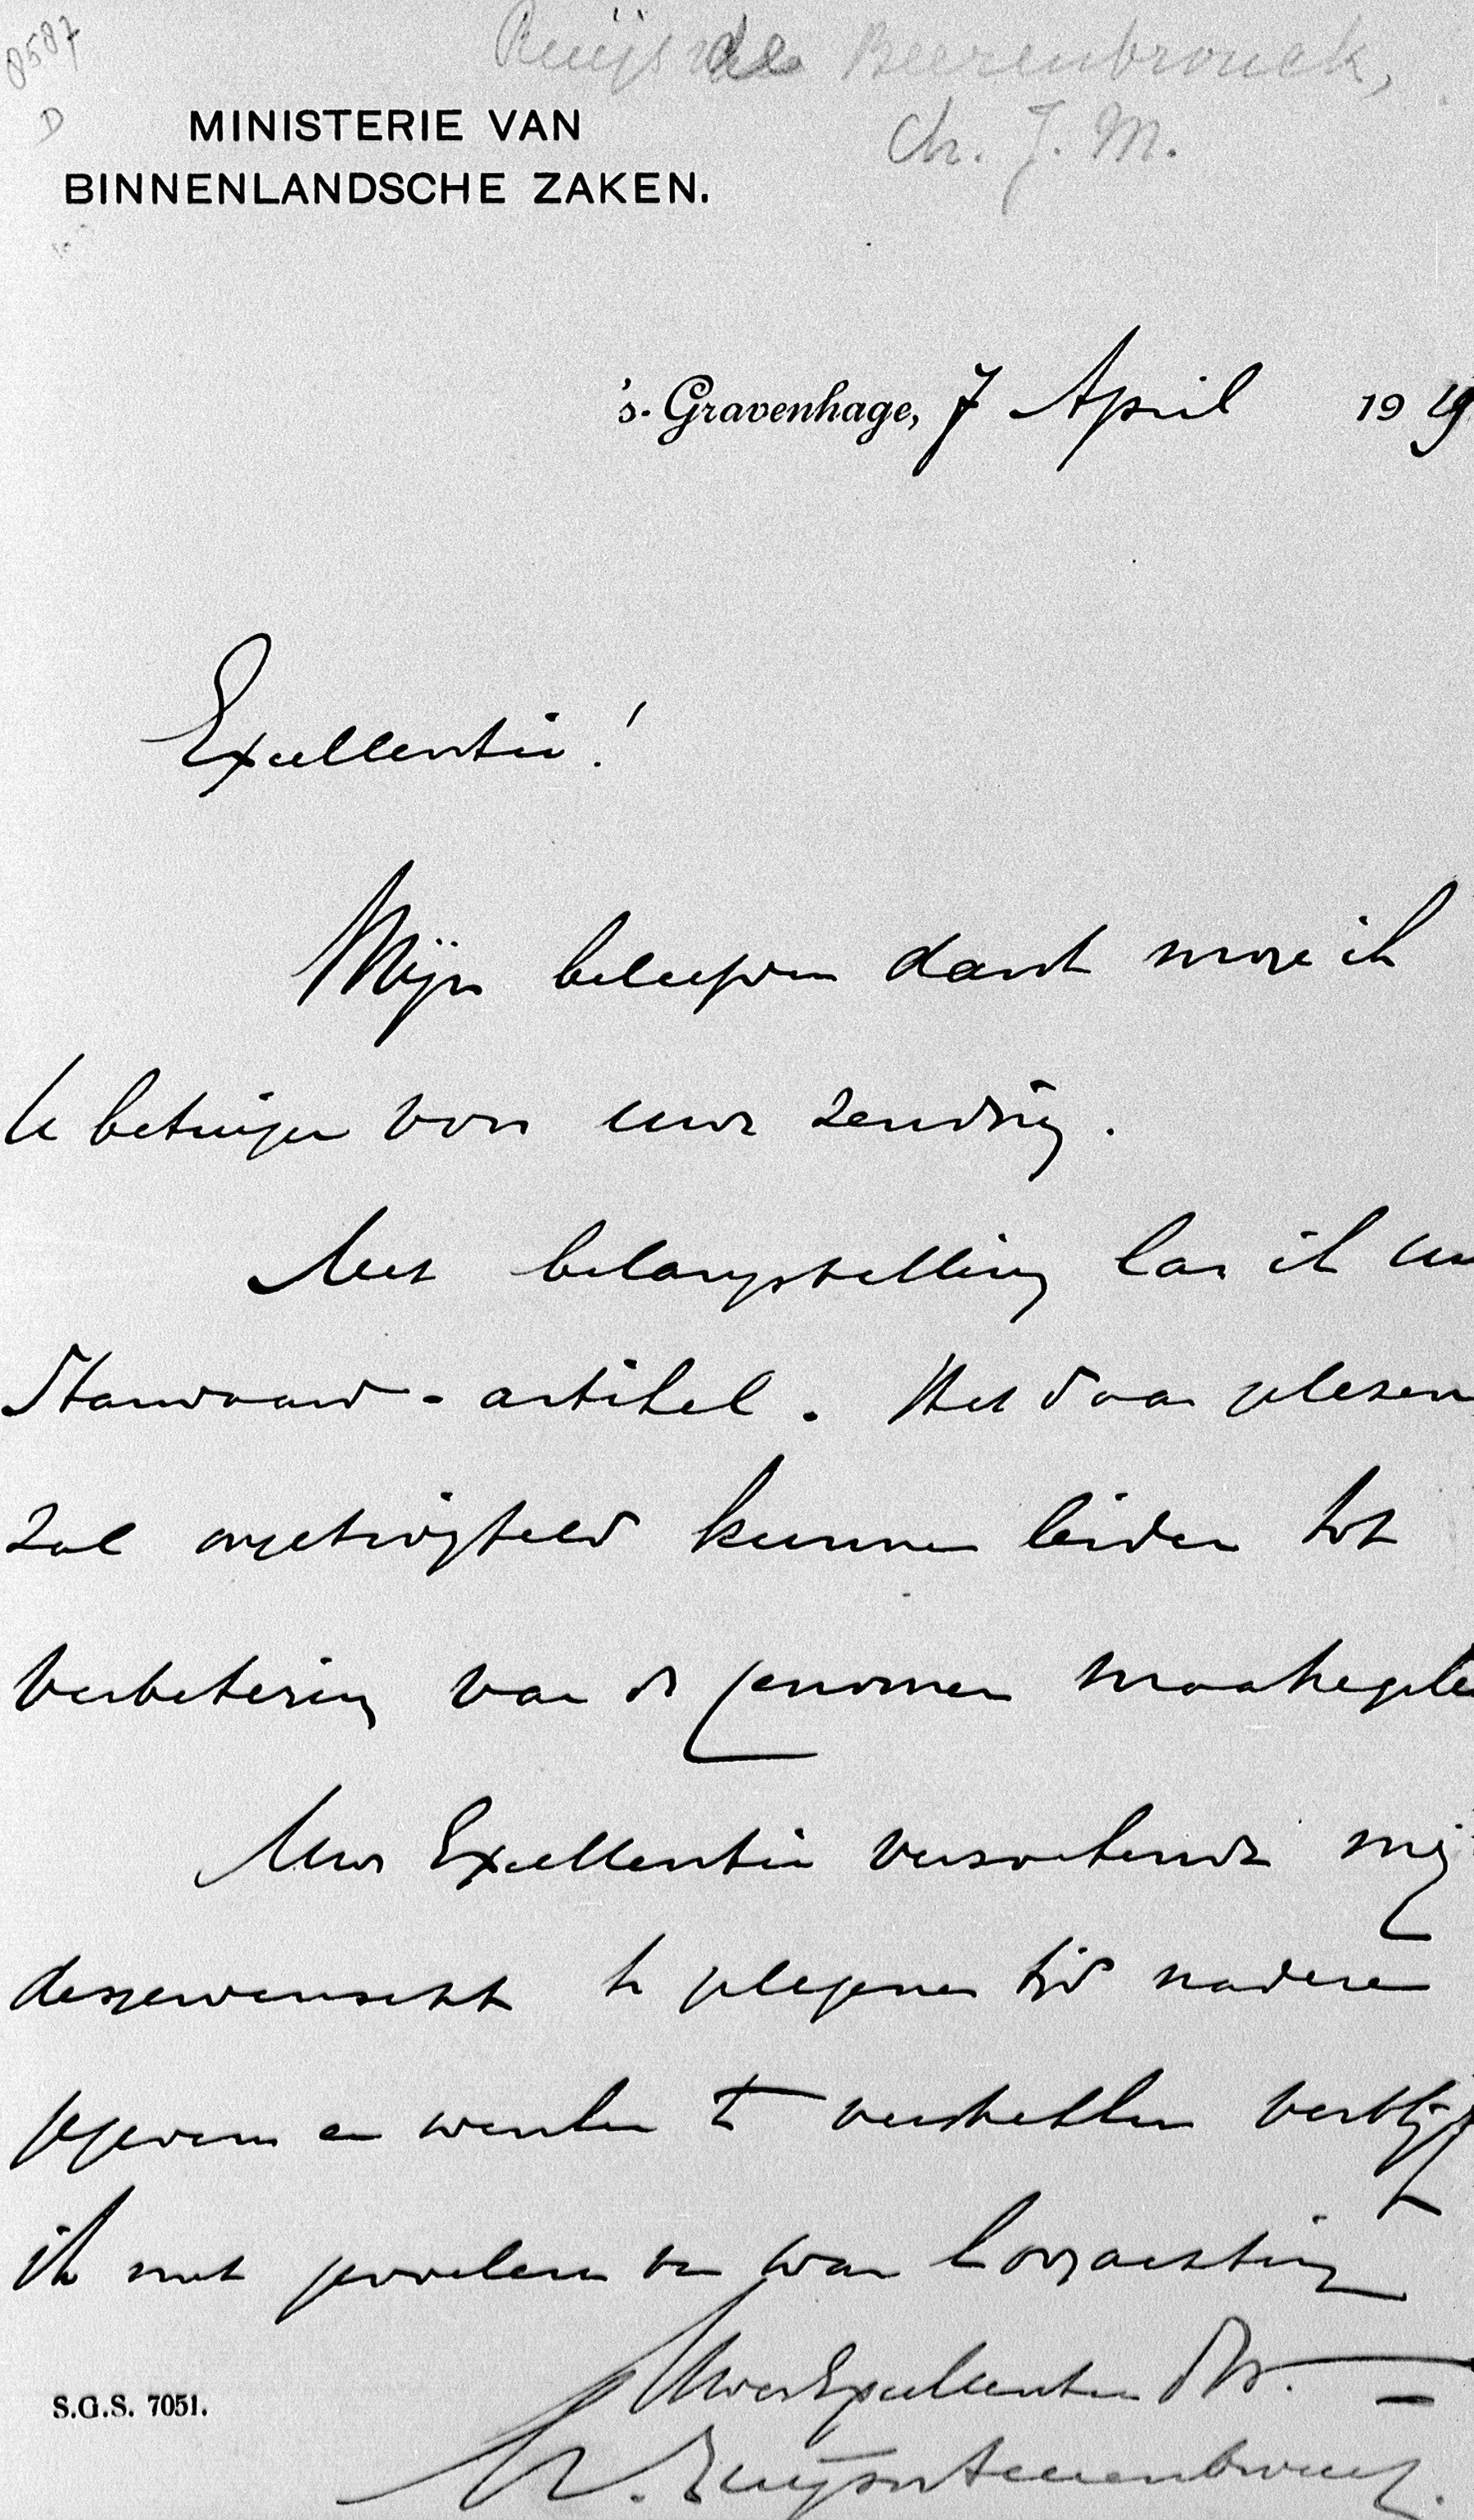 8587
D
Ruijs de Beerenbrouck,
Ch. J. M.
MINISTERIE VAN
BINNENLANDSCHE ZAKEN.
's-Gravenhage, 7 April 1919
Excellentie!
Mijn beleefden dank moge ik
U betuigen voor uwe zending.
Met belangstelling las ik uw
Standaard-artikel. Het daar gelezen
zal ongetwijfeld kunnen leiden tot
verbetering van de genomen maatregelen
Uwe Excellentie verzoekende mij
desgewenscht te gelegener tijd nadere
gegevens en wenken te verstrekken verblijf
ik met gevoelens van ware hoogachting
Uwer Excellentie Dw.
Ch. Ruijs de Beerenbrouck.
S.G.S. 7051.